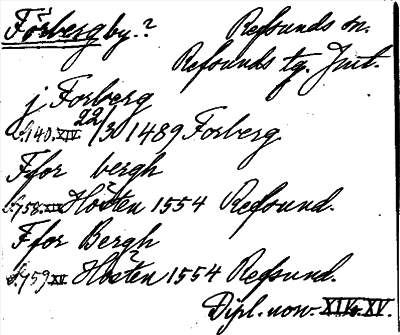 Förbergby.? Refsunds sn.
Refsunds tg. Jmt.
j Forberg
S.140.XIV. 22/3 1489 Forberg
Ffor bergh
S.758.XV Hösten 1554 Refsund.
Ffor Bergh
S.759 XV. Hösten? 1554 Refsund.
Dipl. norv. XIV o. XV.